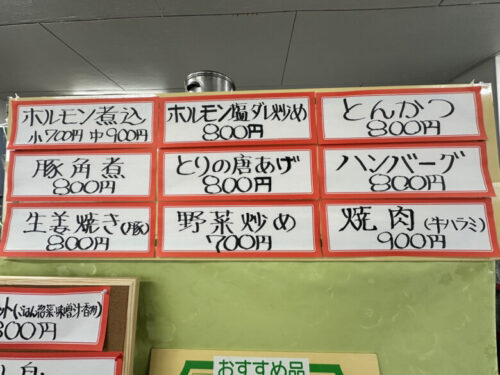 ホルモン煮込
小700円 中900円
ホルモン塩ダレ炒め
800円
とんかつ
800円
豚角煮
800円
とりの唐あげ
800円
ハンバーグ
800円
生姜焼き(豚)
800円
野菜炒め
700円
焼肉(牛ハラミ)
900円
ット(ごはん 惣菜 味噌汁 香物)
300円
おすすめ品